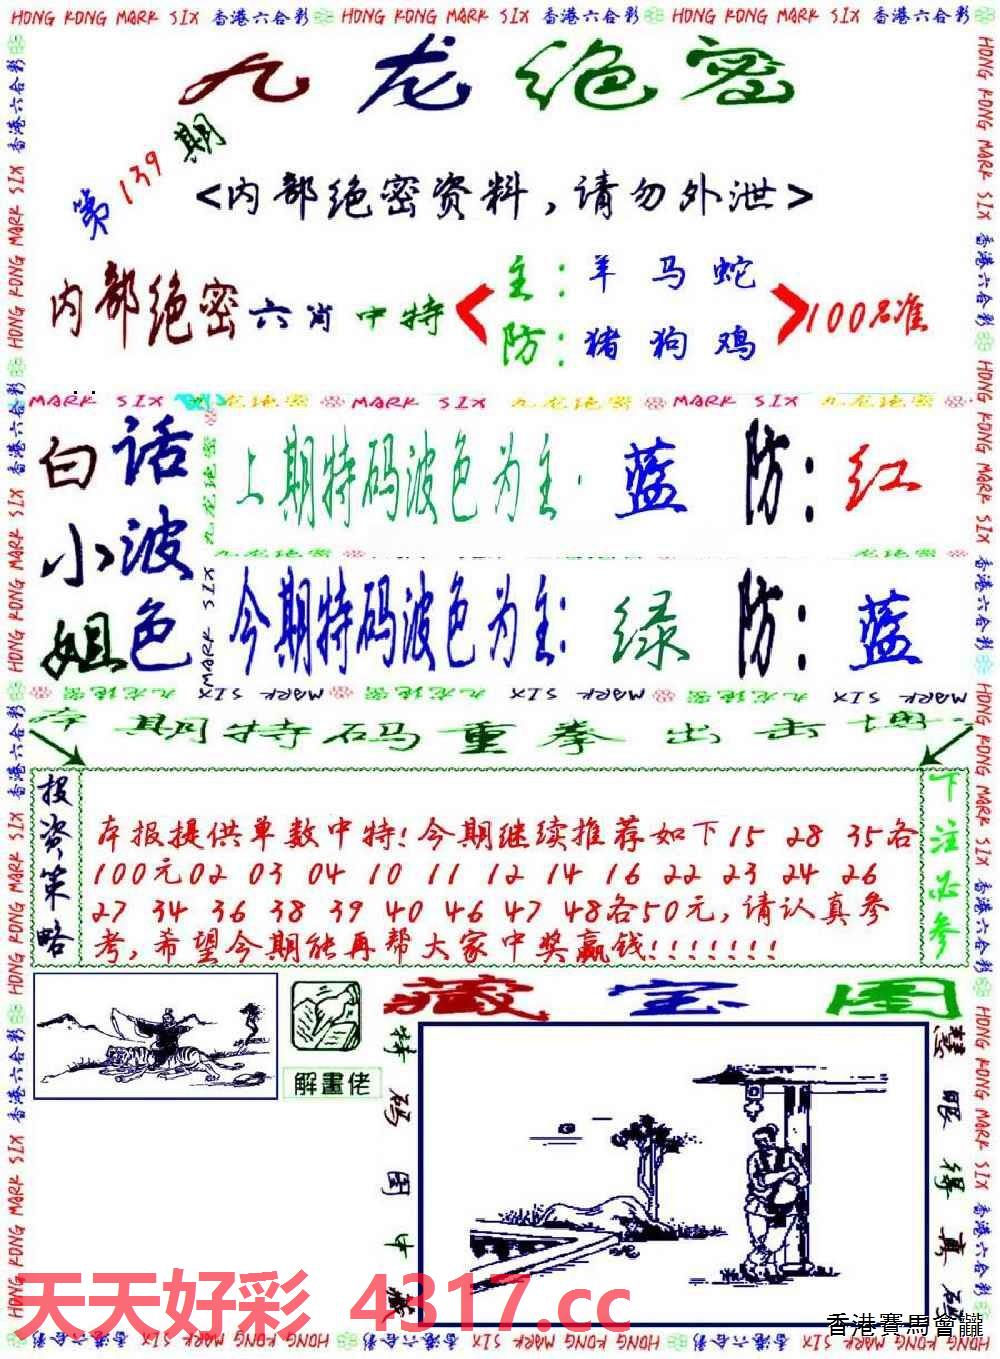 HONG KONG MARK SIX 香港六合彩 HONG KONG MARK SIX 香港六合彩 HONG KONG MARK SIX 香港六合彩
九龙绝密
第139期
<内部绝密资料,请勿外泄>
内部绝密六肖中特
主:羊 马 蛇
防:猪 狗 鸡
100%准
MARK SIX 九龙绝密 MARK SIX 九龙绝密 MARK SIX 九龙绝密
白小姐
话波色
上期特码波色为主·蓝 防:红
今期特码波色为主:绿 防:蓝
本期特码重拳出击
投资策略
本报提供单数中特!今期继续推荐如下15 28 35各
100元02 03 04 10 11 12 14 16 22 23 24 26
27 34 36 38 39 40 46 47 48各50元,请认真参
考,希望今期能再帮大家中奖赢钱!!!!!!!
下注必参
解畫佬
藏宝图
特码图中藏
慧眼得真码
天天好彩 4317.cc
香港賽馬會
HONG KONG MARK SIX 香港六合彩 HONG KONG MARK SIX 香港六合彩 HONG KONG MARK SIX 香港六合彩